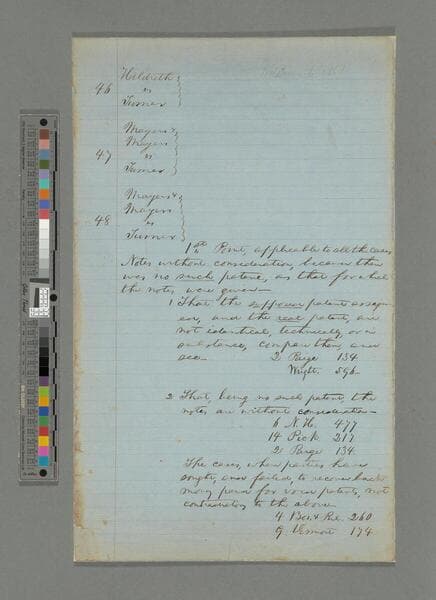 Hildreth
46 vs
Turner
Mayers &
Mayers
47 vs
Turner
Mayers &
Mayers
48 vs
Turner
1st Point, applicable to all the cases
Notes without consideration, because there
was no such patent, as that for which
the notes were given—
1 That the supposed patent
and the real patent, are
not identical, technically or in
substance, compare them, and
see— 2 Paige 134
Wright. 596—
2 That being no such patent, the
notes are without consideration—
6 N.H. 477
14 Pick 217
2 Paige 134
The cases, when parties have
sought, and failed, to recover back
money paid for void patents, not
contradictory to the above—
4 Bos. & Pul. 260
9 Vermont 174